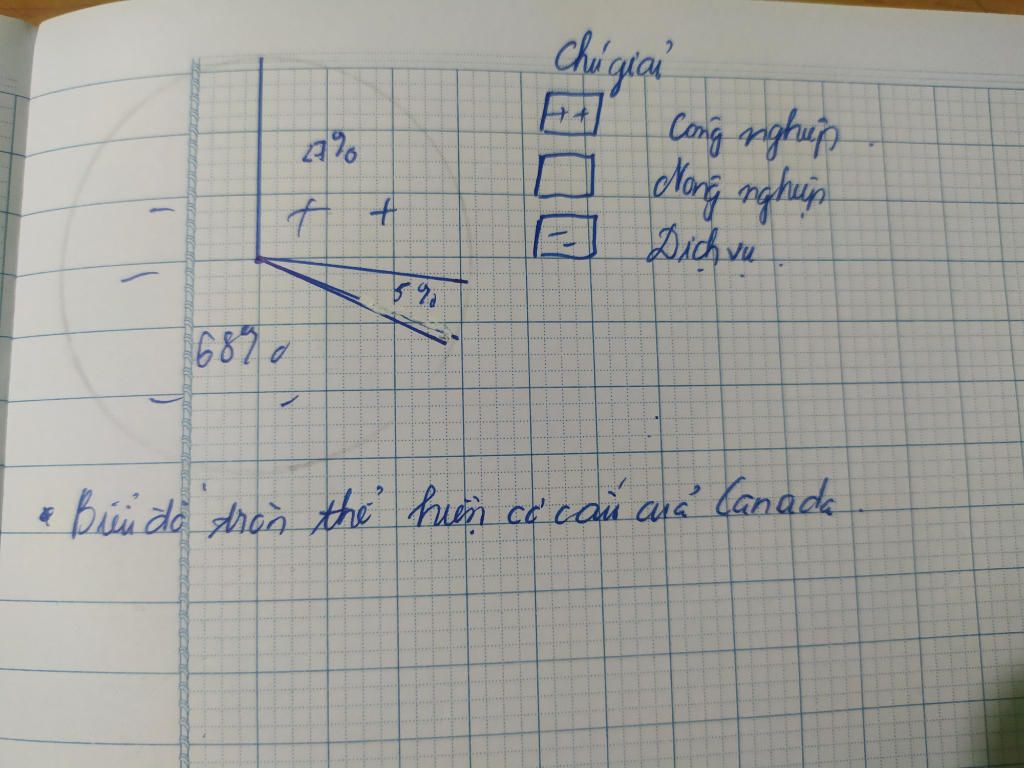 Chú giải
27%
+ +
++ Công nghiệp.
Nông nghiệp
Dịch vụ.
5%
68%
* Biểu đồ tròn thể hiện cơ cấu của Canada.